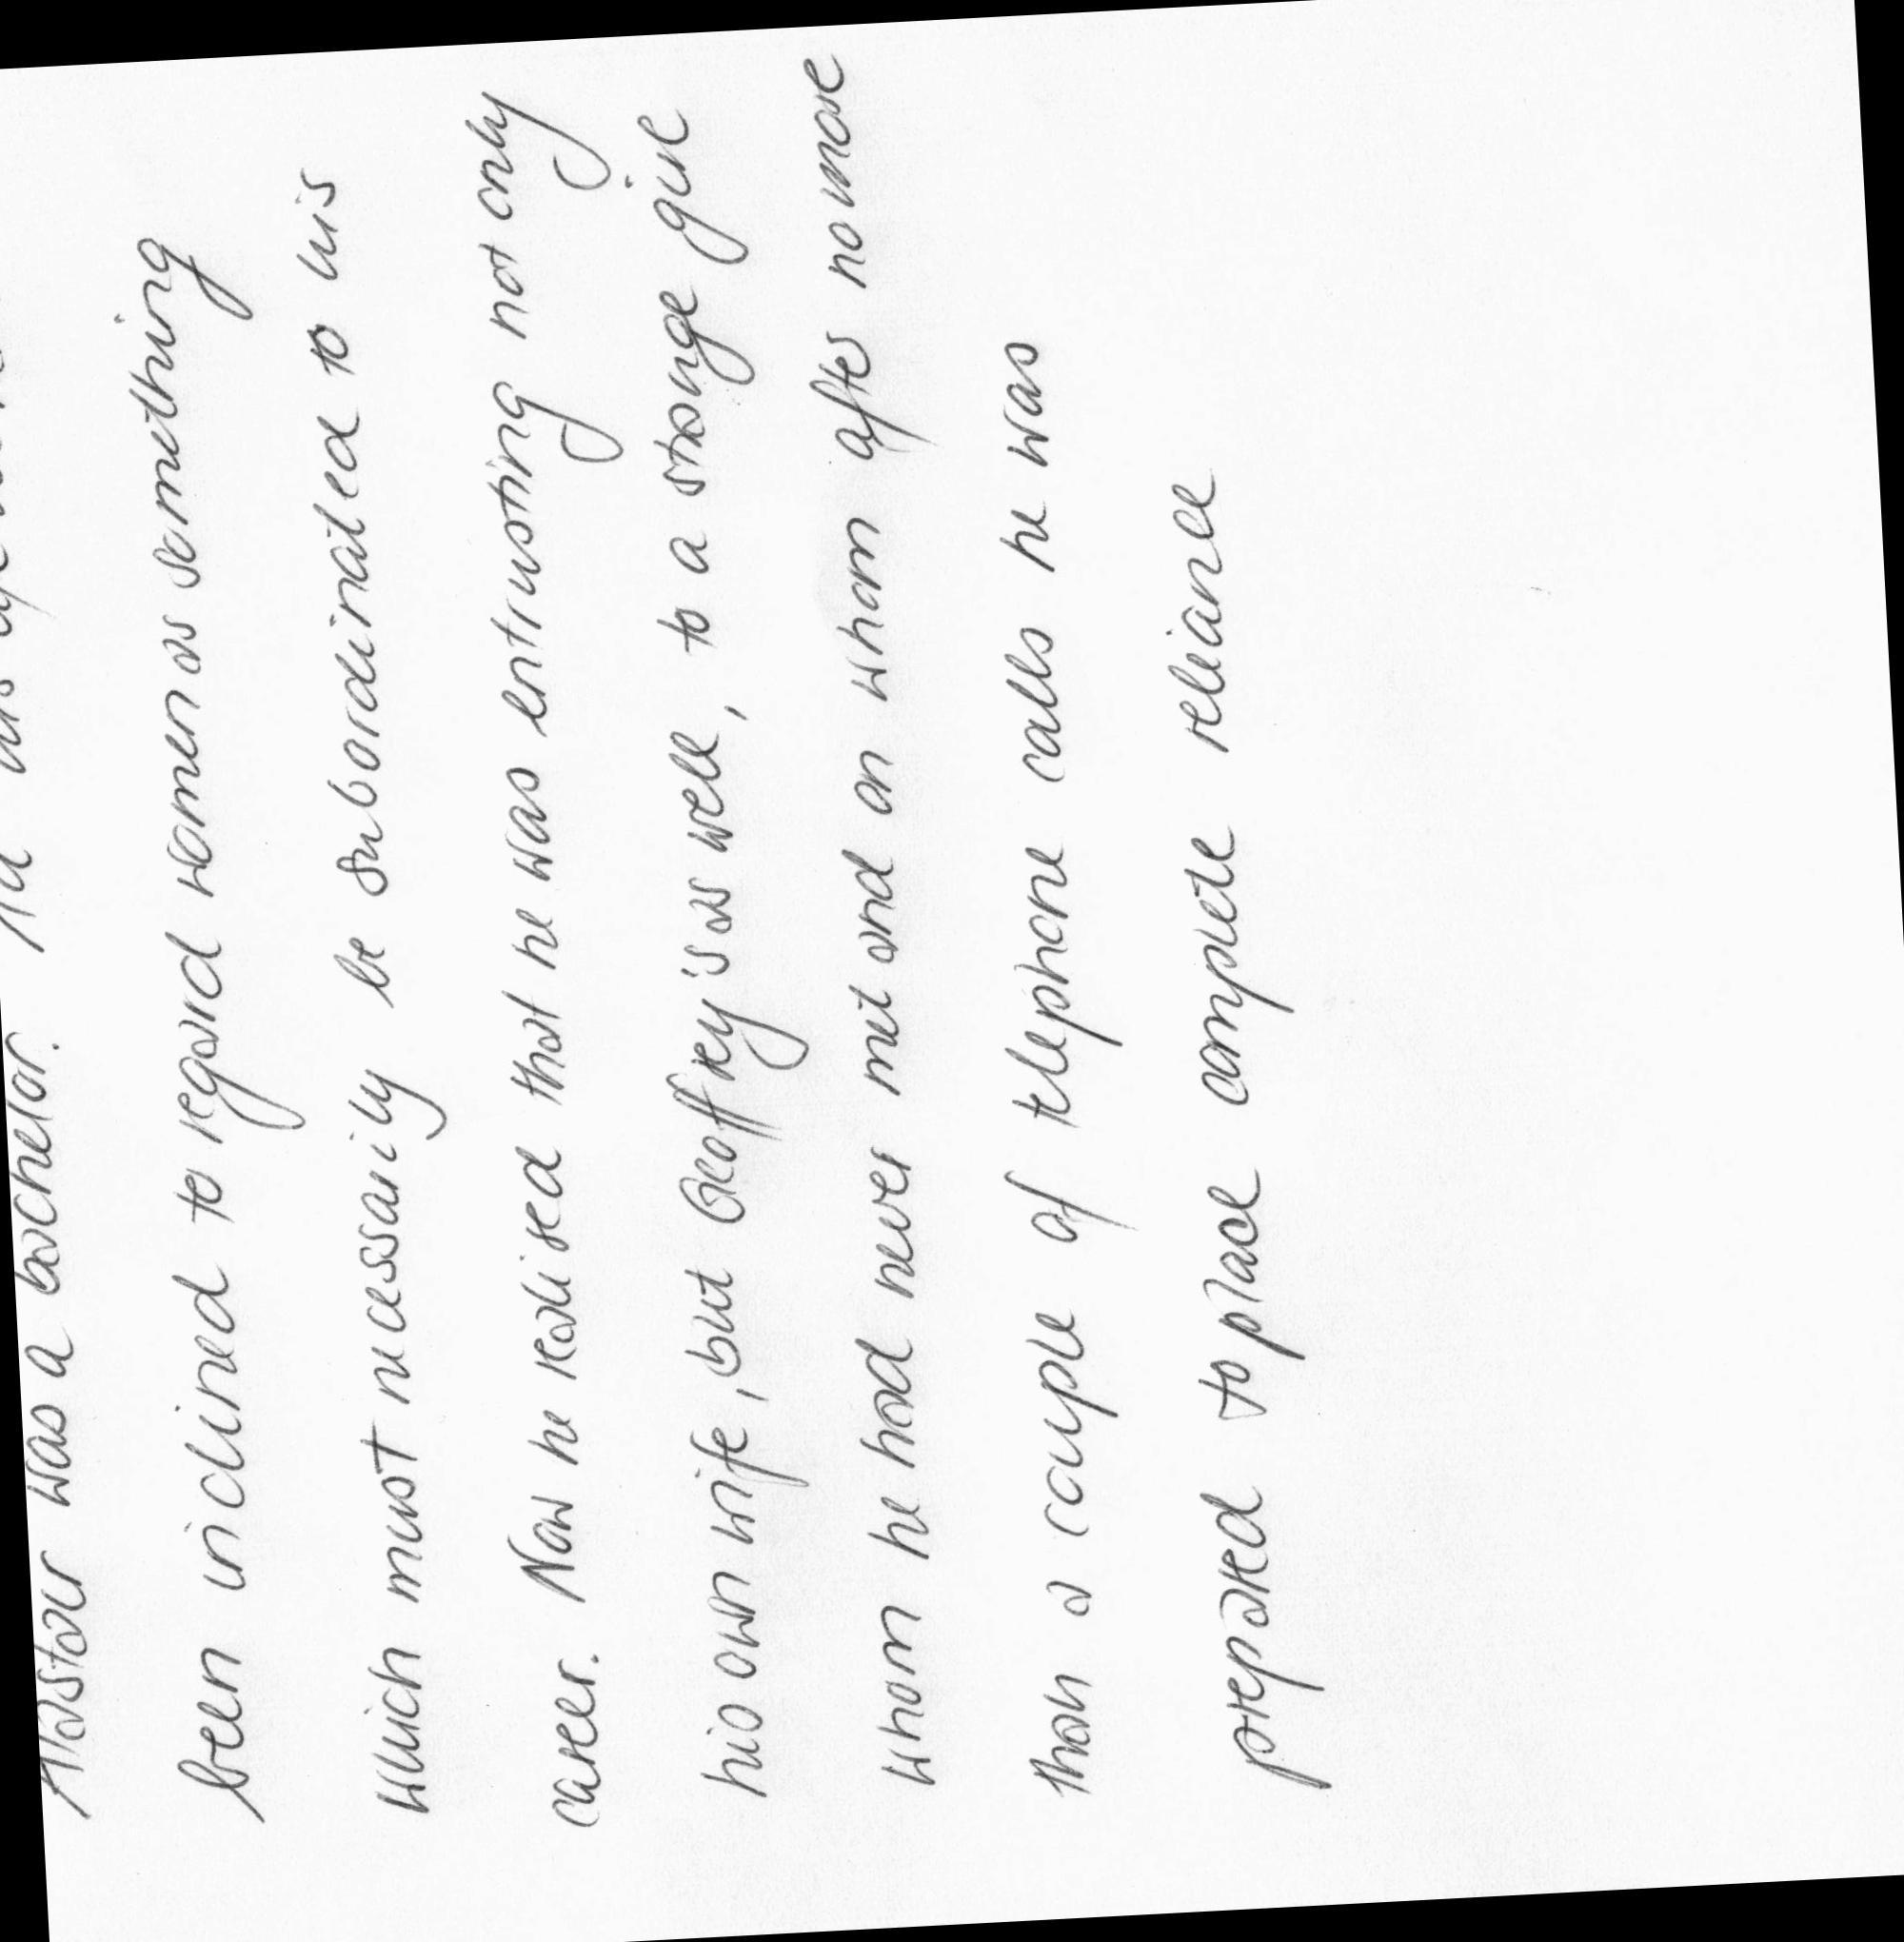 Alastair was a bachelor. All his
been inclined to regard women as something
which must necessarily be subordinated to his
career. Now he realised that he was entrusting not only
his own wife, but Geoffrey's as well, to a strange girl
whom he had never met and on whom after no more
than a couple of telephone calls he was
prepared to place complete reliance